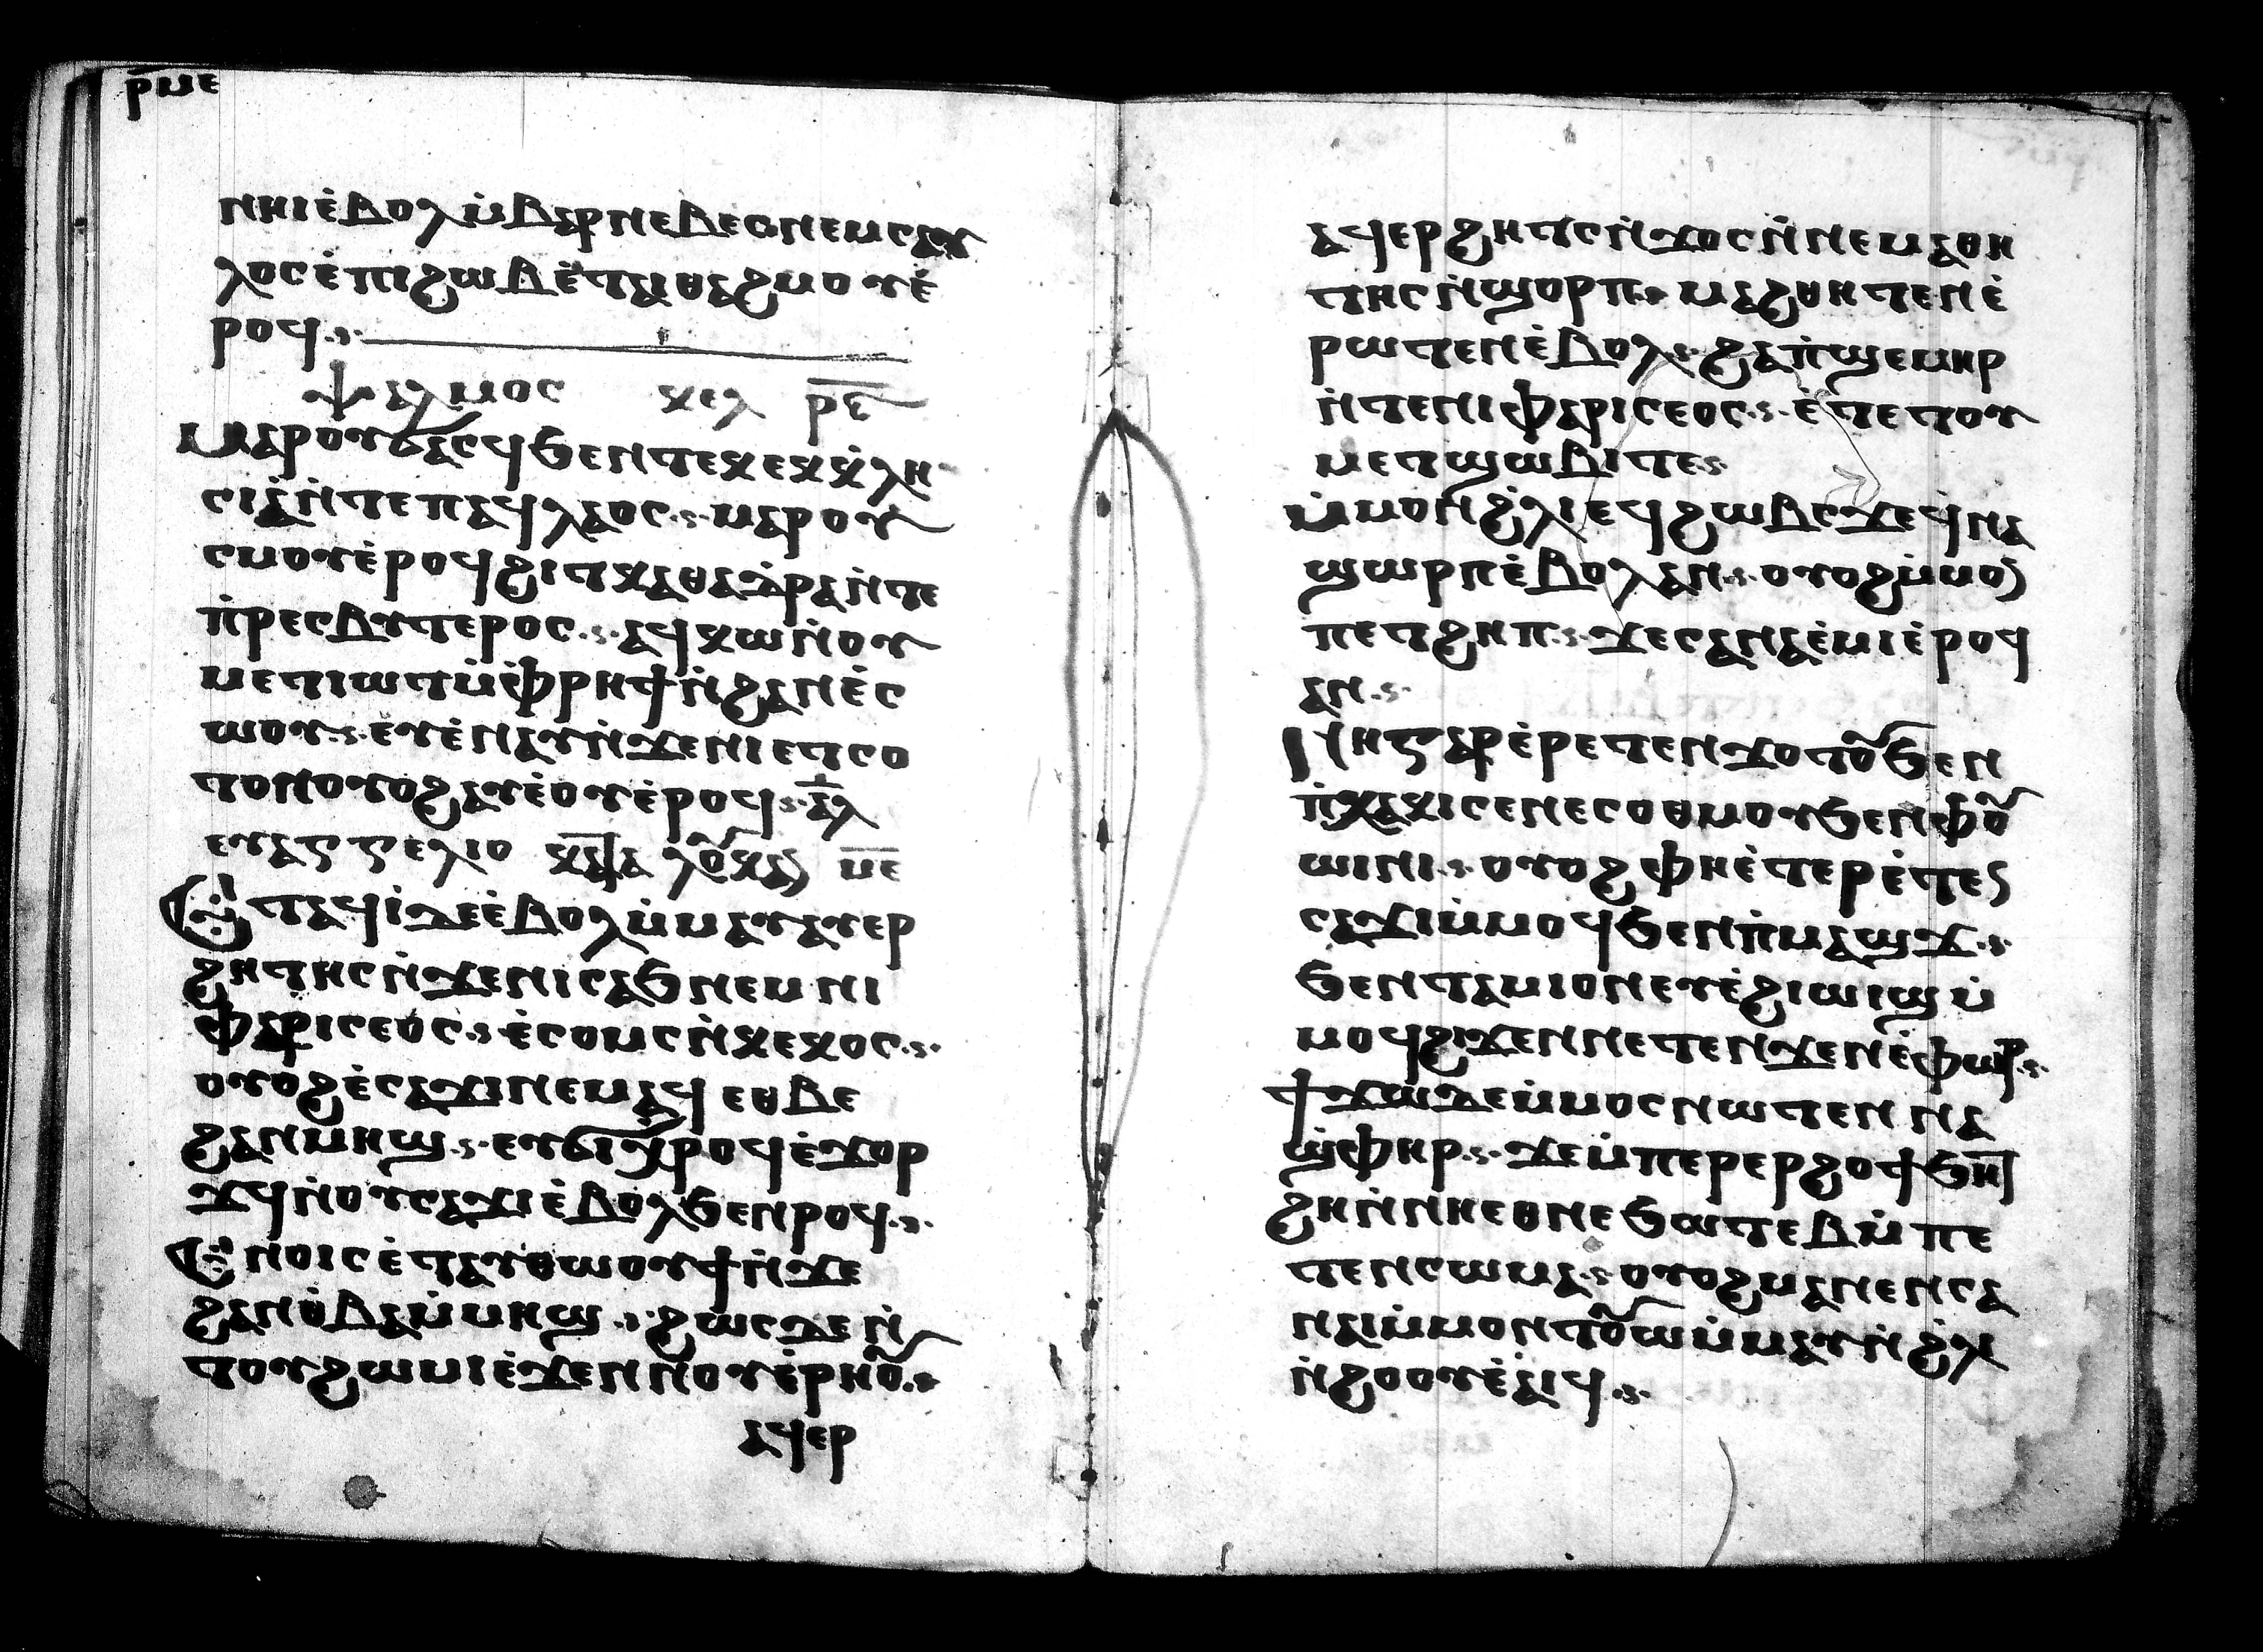 ⲣ̅ⲙⲉ
ⲛⲏⲓ ⲉ̀ⲃⲟⲗ ⲙ̀ⲃⲁⲣⲛⲉⲃⲉⲥ ⲛⲉⲙ ⲥⲁⲩ
ⲗⲟⲥ ⲉ̀ⲡⲓϩⲱⲃ ⲉ̀ⲧⲁⲓⲑⲁϩⲙⲟⲩ ⲉ̀
ⲣⲟϥ
ⲯⲁⲗⲙⲟⲥ ⲕⲉⲗ ⲣ̅ⲉ̅
ⲙⲁⲣⲟⲩϭⲁⲥϥ ϧⲉⲛ ⲧⲉⲕⲉⲕⲕⲗⲏ
ⲥⲓⲁ ⲛ̀ⲧⲉ ⲡⲁϥⲗⲁⲟⲥ ⲙⲁⲣⲟⲩ
ⲥⲙⲟⲩ ⲉ̀ⲣⲟϥ ϩⲓ ⲧⲕⲁⲑⲁⲇⲣⲁ ⲛ̀ⲧⲉ
ⲡ̀ⲣⲉⲥⲃⲩⲧⲉⲣⲟⲥ ⲁϥⲭⲱ ⲛ̀ⲟⲩ
ⲙⲉⲧⲓⲱⲧ ⲙ̀ⲫⲣⲏϯ ⲛ̀ϩⲁⲛⲉ̀ⲥ
ⲱⲟⲩ ⲉⲩⲉ̀ⲛⲁⲩ ⲛ̀ϫⲉⲛⲓⲉⲧⲥⲟ
ⲧⲟⲛ ⲟⲩⲟϩ ⲁⲩⲉ̀ⲟⲩ ⲉ̀ⲣⲟϥ ⲁ̅ⲗ
ⲉⲩⲁⲅⲅⲉⲗⲓⲟ ⲕⲁⲧⲁ ⲗⲟⲩⲕⲁⲛ ⲙ̅ⲉ̅
Ⲉⲧⲁϥⲓ̀ ⲇⲉ ⲉ̀ⲃⲟⲗ ⲙ̀ⲙⲁⲩ ⲁⲩⲉⲣ
ϩⲏⲧⲏⲥ ⲛ̀ϫⲉⲛⲓⲥⲁϧ ⲛⲉⲙ ⲛⲓ
ⲫⲁⲣⲓⲥⲉⲟⲥ ⲉ̀ⲥⲟⲙⲥ ⲛ̀ⲕⲉⲕⲟⲥ
ⲟⲩⲟϩ ⲉ̀ⲥⲁϫⲓ ⲛⲉⲙⲁϥ ⲉⲑⲃⲉ
ϩⲁⲛⲙⲏϣ ⲉⲩϭⲓⲭⲣⲟϥ ⲉ̀ϫⲟⲣ
ϫϥ ⲛ̀ⲟⲩⲥⲁϫⲓ ⲉ̀ⲃⲟⲗ ϧⲉⲛ ⲣⲟϥ
Ⲉⲛⲟⲓⲥ ⲉ̀ⲧⲁⲩⲑⲱⲟⲩϯ ⲛ̀ϫⲉ
ϩⲁⲛⲑ̀ⲃⲁ ⲙ̀ⲙⲏϣ ϩⲱⲥⲇⲉ ⲛ̀
ⲧⲟⲩϩⲱⲙⲓ ⲉ̀ϫⲉⲛ ⲛⲟⲩⲉ̀ⲣⲏⲟⲩ
ⲁϥⲉⲣ
ⲁϥⲉⲣϩⲏⲧⲥ ⲛ̀ϫⲟⲥ ⲛ̀ⲛⲉⲙⲁⲑⲏ
ⲧⲏⲥ ⲛ̀ϣⲟⲣⲡ ⲙⲁϩⲑⲏⲧⲉⲛ ⲉ̀
ⲣⲱⲧⲉⲛ ⲉ̀ⲃⲟⲗ ϩⲁ ⲡ̀ϣⲉⲙⲏⲣ
ⲛ̀ⲧⲉ ⲛⲓⲫⲁⲣⲓⲥⲉⲟⲥ ⲉ̀ⲧⲉ ⲧⲟⲩ
ⲙⲉⲧϣⲱⲃⲓ ⲧⲉ
ⲙ̀ⲙⲟⲛ ϩ̀ⲗⲓ ⲉϥϩⲱⲃⲥ ϫⲉ ϥ̀ⲛⲁ
ϣⲱⲣⲡ ⲉ̀ⲃⲟⲗ ⲁⲛ ⲟⲩⲟϩ ⲙ̀ⲙⲟⲛ
ⲡⲉⲧϩⲏⲡ ϫⲉ ⲥⲁⲛⲁⲉ̀ⲙⲓ ⲉ̀ⲣⲟϥ
ⲁⲛ
Ⲛⲏ ⲅⲁⲣ ⲉ̀ⲣⲉⲧⲉⲛϫⲟⲧⲟⲩ ϧⲉⲛ
ⲡ̀ⲭⲁⲕⲓ ⲥⲉⲛⲉⲥⲟⲑⲙⲟⲩ ϧⲉⲛ ⲫⲟⲩ
ⲱⲓⲛⲓ ⲟⲩⲟϩ ⲫⲏ ⲉ̀ⲧⲉⲣⲉ̀ⲧⲉⲛ
ⲥⲁϫⲓ ⲙ̀ⲙⲟϥ ϧⲉⲛ ⲡ̀ⲙⲁϣϫ
ϧⲉⲛ ⲧⲁⲙⲓⲟⲛ ⲉⲩⲉ̀ϩⲓⲱⲓϣ ⲙ̀
ⲙⲟϥ ϩⲓϫⲉⲛ ⲛⲉⲧⲉⲛϫⲉⲛⲉ̀ⲫⲱⲣ
ϯϫⲱ ϫⲉ ⲙ̀ⲙⲟⲥ ⲛⲱⲧⲉⲛ ⲛⲁ
ϣ̀ⲫⲏⲣ ϫⲉ ⲙ̀ⲡⲉⲣⲉⲣϩⲟϯ ϧⲁⲧ
ϩⲏ ⲛ̀ⲛⲏ ⲉⲑⲛⲉϧⲱⲧⲉⲃ ⲙ̀ⲡⲉ
ⲧⲉⲛⲥⲱⲙⲁ ⲟⲩⲟϩ ⲙⲁⲛⲉⲛⲥⲁ
ⲛⲁⲓ ⲙ̀ⲙⲟⲛⲧⲟⲩ ⲱ̀ ⲙ̀ⲙⲁⲩ ⲛ̀ϩ̀ⲗ
ⲛ̀ϩⲟⲟⲩ ⲉ̀ⲁⲓϥ